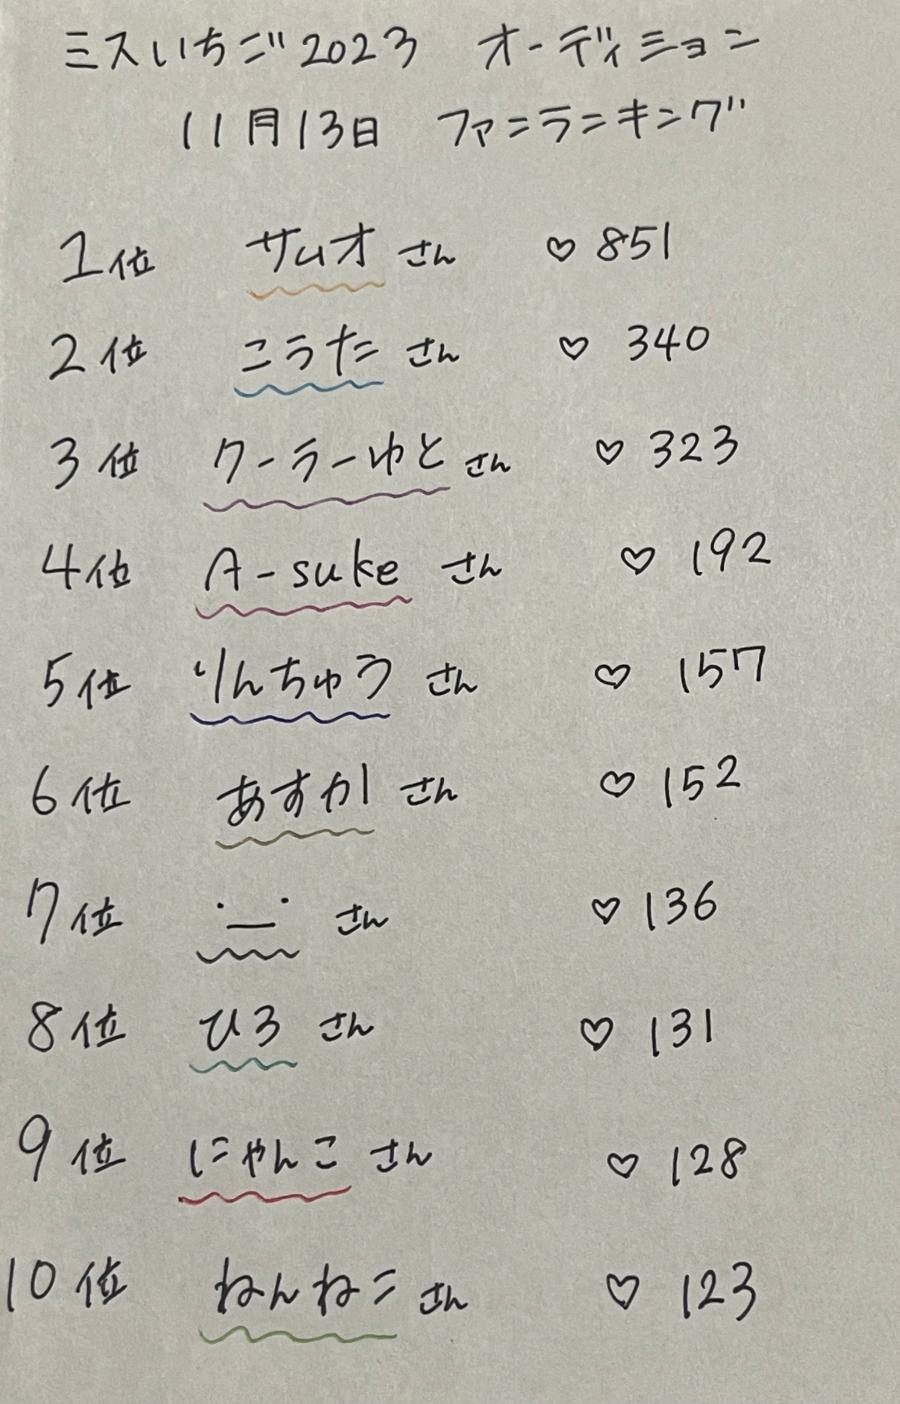 ミスいちご2023 オーディション
11月13日 ファンランキング
1位 サムオさん ♡ 851
2位 こうたさん ♡ 340
3位 クーラーゆとさん ♡ 323
4位 A-sukeさん ♡ 192
5位 りんちゅうさん ♡ 157
6位 あすかさん ♡ 152
7位 ˙–˙ さん ♡ 136
8位 ひろさん ♡ 131
9位 にゃんこさん ♡ 128
10位 ねんねこさん ♡ 123